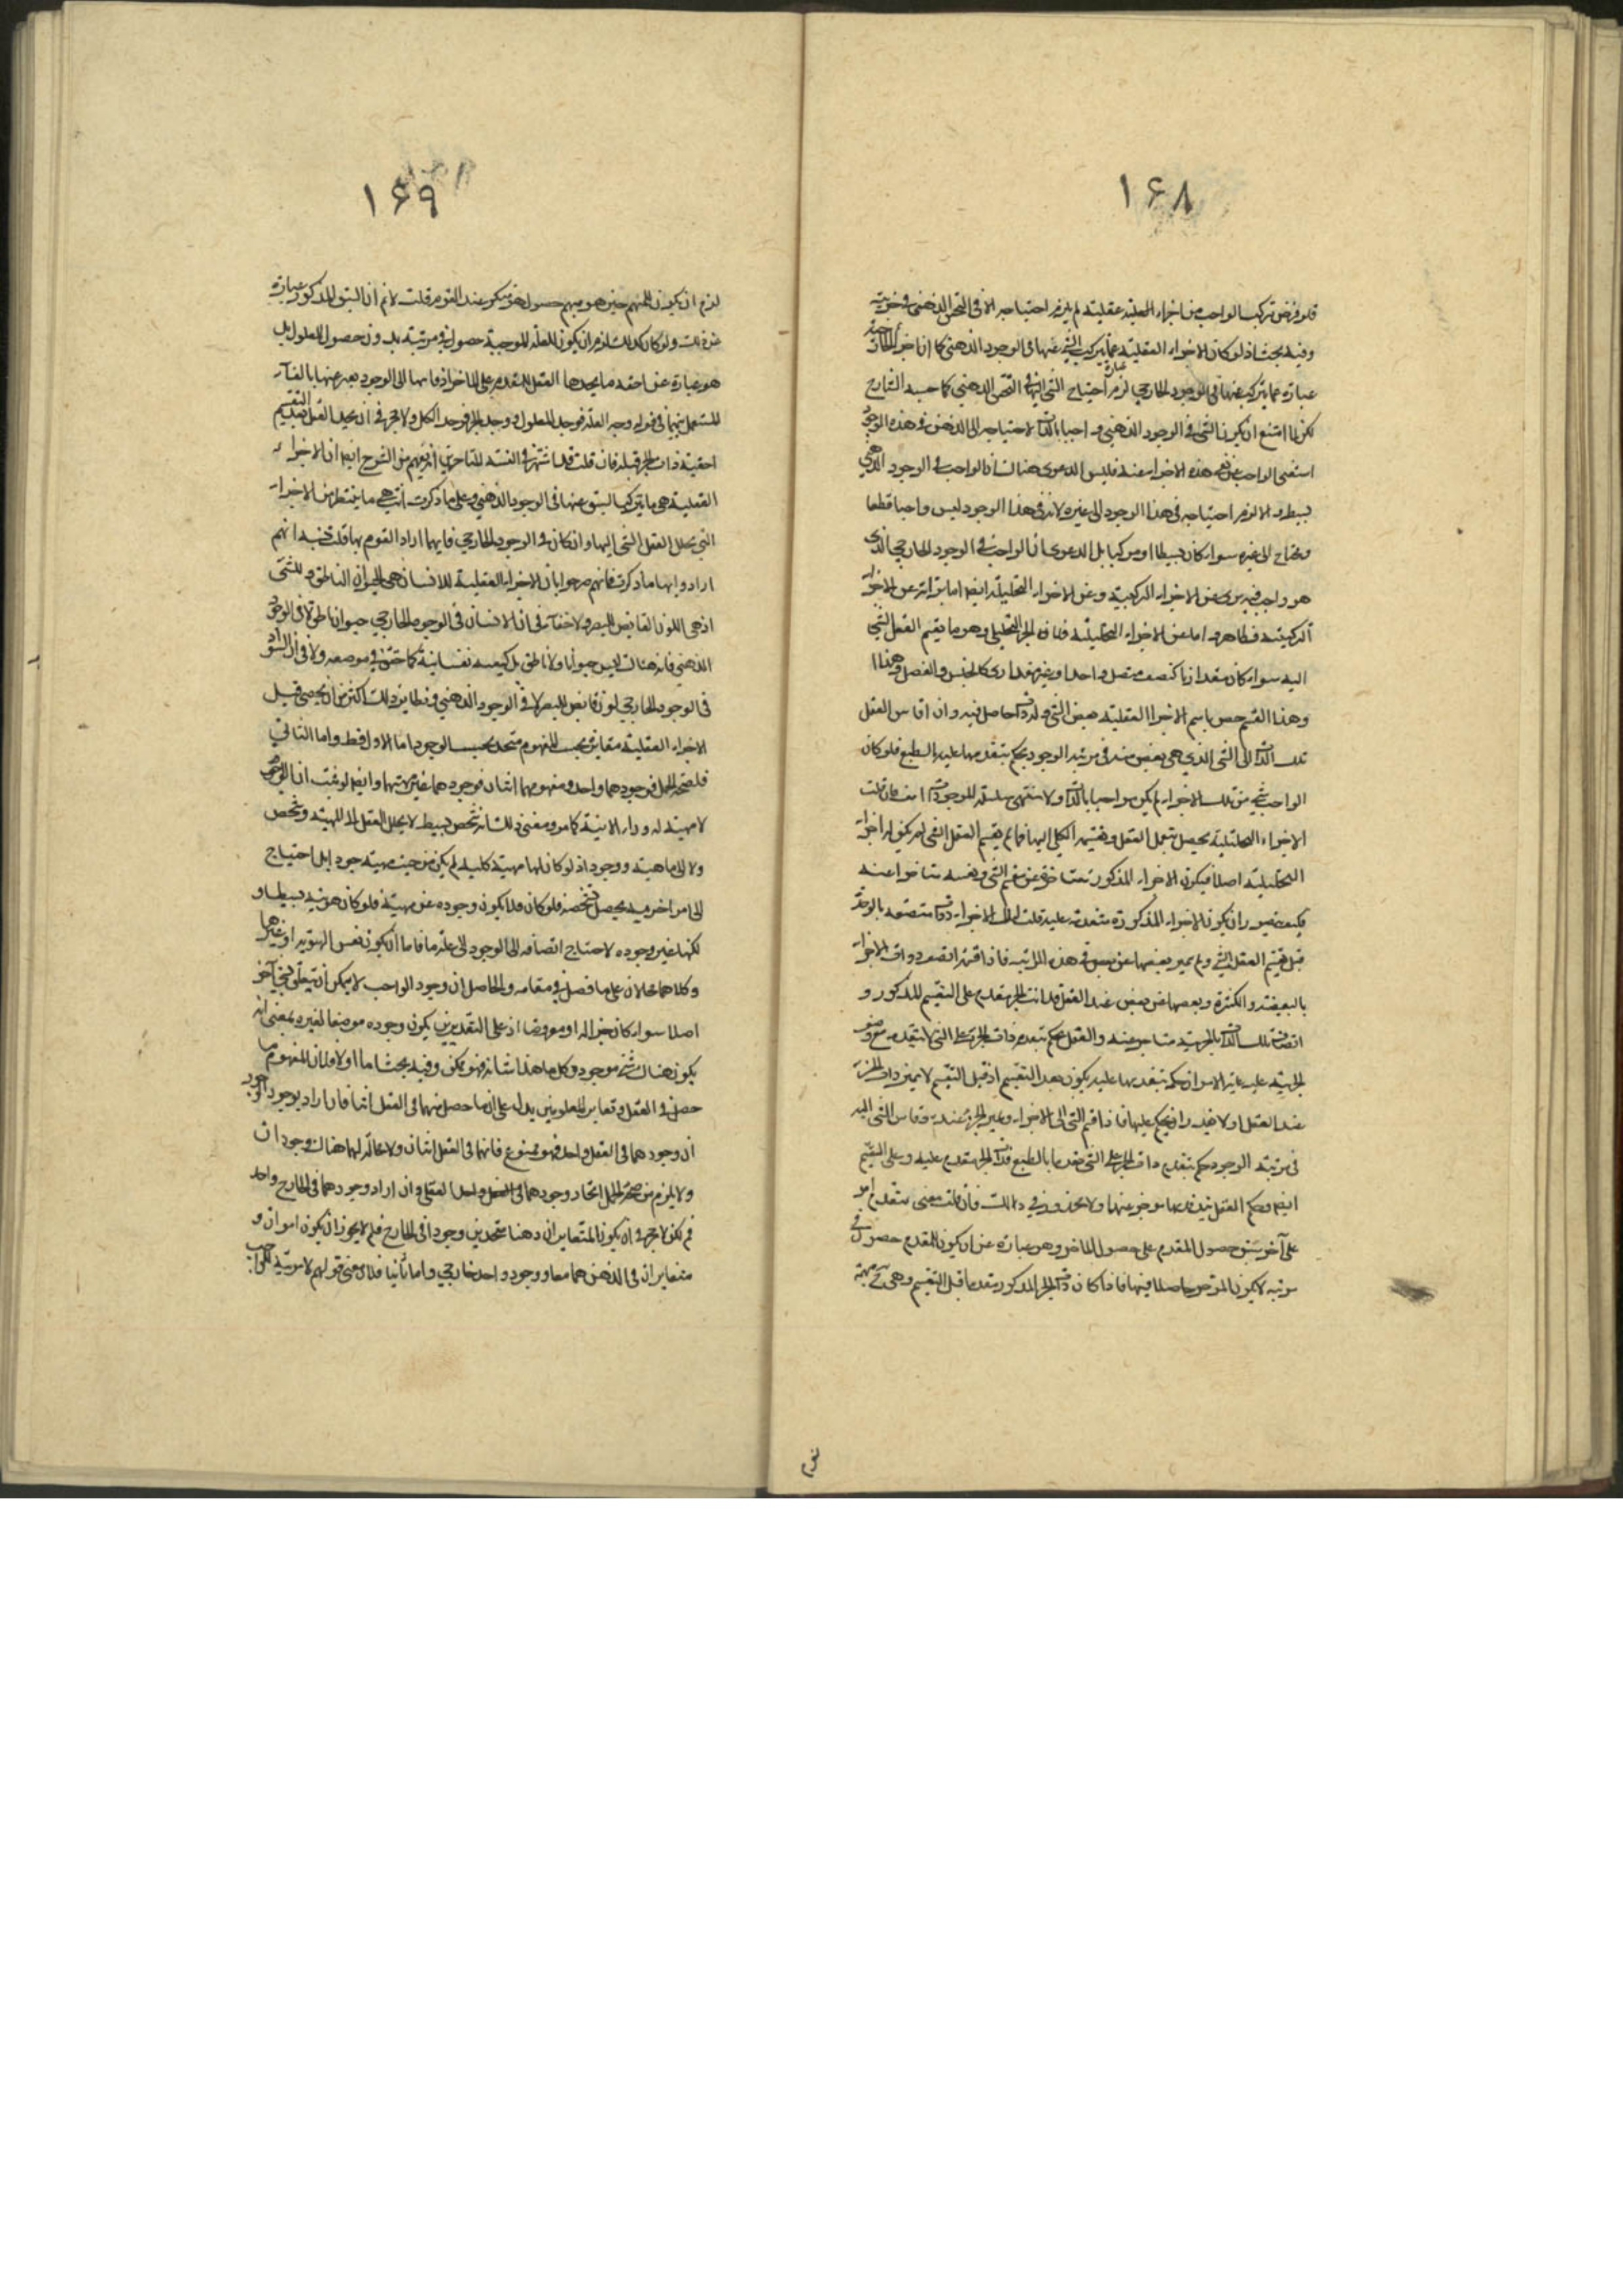 ١۶٨
فلو فرض تركب الواجب من اجزاء عقلية لم يلزم احتياجه الا في الذهني
وفيه بحث اذ لو كان الاجزاء العقلية عما يتركب الشئ عنها في الوجود الذهني كما ان اجزاء الخارجية
عبارة عما يتركب عنها في الوجود الخارجي لزم احتياج الشئ اليها في الذهني كما حسبه الشارح
لكن لما امتنع ان يكون الشئ في الوجود الذهني واجبا بالذات لاحتياجه الى الذهن في هذه الوجود
استغنى الواجب عن هذه الاجزاء عنه فليس الدعوى هناك ان الواجب في الوجود الذهني
بسيط والا لزم احتياجه في هذا الوجود الى غيره لانه في هذا الوجود ليس واجبا قطعا
ومحتاج الى غيره سواء كان بسيطا او مركبا بل الدعوى ان الواجب في الوجود الخارجي الذي
هو واجب فيه برئ عن الاجزاء التركيبية وعن الاجزاء التحليلية ايضا اما برائته عن الاجزاء
التركيبية فظاهر واما عن الاجزاء التحليلية فلان الجزء التحليلي وهو ما يقسم العقل الشئ
اليه سواء كان مقداريا كنصف متصل واحد او غير مقداري كالجنس والفصل وهذا
وهذا القسم خص باسم الاجزاء العقلية بعض الشئ وله ذات حاصل فيه وان قاس العقل
تلك الذات الى الشئ الذي هي بعض منه في مرتبة الوجود يحكم بتقدمها عليه بالطبع فلو كان
الواجب شئ من تلك الاجزاء لم يكن واجبا بالذات ولا منتهى سلسلة الموجودات فان قلت
الاجزاء التحليلية يحصل بتعمل العقل وتقسيمه الكلي اليها فما لم يقسم العقل الشئ لم يكن له اجزاء
التحليلية اصلا فيكون الاجزاء المذكورة متأخرة عن تقسيم الشئ ونفسه متأخرا عنه
فكيف يتصور ان يكون الاجزاء المذكورة متقدمة عليه قلت تلك الاجزاء ذوات متصفة بالوحدة
قبل تقسيم العقل الشئ ولم يتميز بعضها عن بعض في هذه المرتبة فاذا قسم اتصف ذوات الاجزاء
بالبعضية والكثرة وبعضها عن بعض عند العقل فذات الجزء متقدم على التقسيم المذكور و
اتصاف تلك الذات بالجزئية متأخر عنه والعقل يحكم بتقدم ذات الجزء على الشئ لا بتقدمه مع وصف
الجزئية عليه غاية الامر ان حكمه بتقدمها عليه يكون بعد التقسيم اذ قبل التقسيم لا يتميز ذات الجزء
عند العقل اولا فيقدر ان يحكم عليها فاذا قسم الشئ الى الاجزاء وتميز الجزء عنده وقاس الشئ اليه
في مرتبة الوجود حكم بتقدم ذات الجزء على الشئ تقدما بالطبع فذات الجزء متقدم عليه وعلى التقسيم
ايضا وحكم العقل بتقدمها مؤخر عنها ولا محذور في ذلك فان قلت معنى تقدم امر
على آخر سبق حصول المقدم على حصول المتأخر وهو عبارة عن ان يكون للمقدم حصول في
مرتبة لا يكون المتأخر حاصلا فيها فاذا كان ذات الجزء المذكور متقدما قبل التقسيم وهي
١۶٩
لزم ان يكون المبهم حين هو مبهم حصول هو منكر عند القوم قلت لا نم ان السبق المذكور عبارة
عن ذلك ولو كان كذلك لزم ان يكون للعلة الموجبة حصول في مرتبة بدون حصول المعلول بل
هو عبارة عن احقية ما يجدها العقل للمتقدم على المتأخر اذ قاسها الى الوجود يعبر عنها بالفاء
المستعمل بينهما في قوله وجد العلة فوجد المعلول ووجد الجزء فوجد الكل ولا حجر في ان يجد العقل بعد التقسيم
احقية ذات الجزء قبله فان قلت قد اشتهر في السنة المتأخرين انزعتهم من الشرح ايضا ان الاجزاء
العقلية هي ما يتركب الشئ عنها في الوجود الذهني وعلى ما ذكرت هي ما ينتظر من الاجزاء
التي يحلل العقل الشئ اليها وان كان في الوجود الخارجي فايهما اراد القوم بها قلت شبه انهم
ارادوا بها ما ذكرت فانهم صرحوا بان الاجزاء العقلية للانسان هي الحيوان الناطق وللشئ
اذ هي اللون القابض للبصر ولا خفاء في ان الانسان في الوجود الخارجي حيوان ناطق لا في الوجود
الذهني فانه هناك ليس حيوانا ولا ناطق بل كيفية نفسانية كما حقق في موضعه ولا في ان السواد
في الوجود الخارجي لون قابض للبصر لا في الوجود الذهني ونظاير ذلك اكثر من ان يحصى قيل
الاجزاء العقلية متغايرة بحسب المفهوم متحدة بحسب الوجود اما الاول فظ واما الثاني
فلصحة الحمل فوجودهما واحد ومفهومهما اثنان فوجودهما غير مهيتهما وايضا لو ثبت ان الواجب
لا مهية له وراء الانية كما مر ومعنى ذلك انه شخص بسيط لا يحلل العقل الى المهية وشخص
ولا الى ماهية ووجود اذ لو كان لها مهية كلية لم يكن من حيث مهيته موجودا بل احتياج
الى امر آخر فيه يحصل شخصه فلو كان فلا يكون وجوده عن مهيته فلو كان هويته بسيطا و
لكنها غير وجوده لاحتاج اتصافه الى الوجود الى علة ما فاما ان يكون نفس الهوية او غيرها
وكلاهما محالان على ما فصل في مقامه والحاصل ان وجود الواجب لا يمكن ان يتعلق بشئ آخر
اصلا سواء كان جزءا له او معروضا اذ على التقديرين يكون وجوده موضعا لغيره بمعنى انه
يكون هناك شئ موجود وكل ما هذا شأنه فهو ممكن وفيه بحث اما اولا فلان المفهوم ما
حصل في العقل وتغاير المعلومين يدل على ان ما حصل منهما في العقل اثنا فان اراد بوجود الوجود
ان وجودهما في العقل واحد فهو ممنوع فانهما في العقل اثنان ولا محالة لهما هناك وجودان
ولا يلزم من صحة الحمل اتحاد وجودهما في العقل واحد العقلي وان اراد وجودهما في الخارج واحد
فم لكن لا حجر في ان يكون المتغايران ذهنا متحدين وجودا في الخارج فلم لا يجوز ان يكون امران و
متغايران في الذهن هما معا ووجود واحد خارجي واما ثانيا فلان معنى قولهم لا مرتبة الواجب